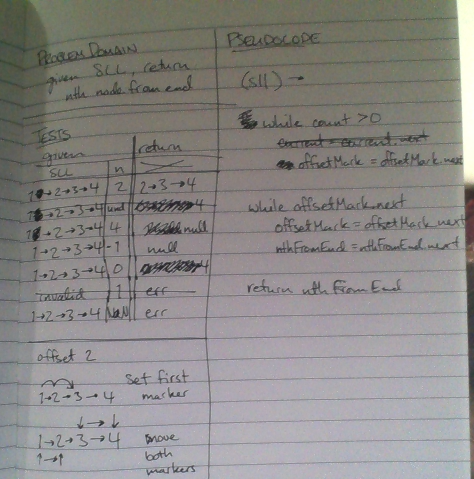 PROBLEM DOMAIN
given SLL, return
nth node from end
TESTS
given | return
SLL | n
1→2→3→4 | 2 | 2→3→4
1→2→3→4 | und | 4
1→2→3→4 | 4 | null
1→2→3→4 | -1 | null
1→2→3→4 | 0 | 4
invalid | 1 | err
1→2→3→4 | NaN | err
offset 2
1→2→3→4 set first
marker
1→2→3→4 move
both
markers
PSEUDOCODE
(sll) →
while count >0
current = current.next
offsetMark = offsetMark.next
while offsetMark.next
offsetMark = offsetMark.next
nthFromEnd = nthFromEnd.next
return nthFromEnd